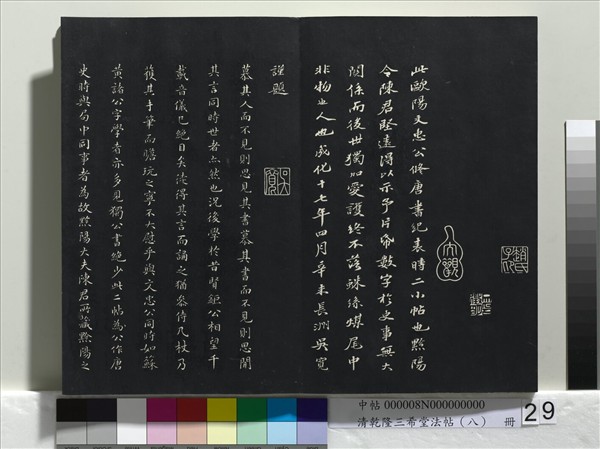 此歐陽文忠公脩唐書紀表時二小帖也黟陽
令陳君堅遠得以示予片帋數字於史事無大
關係而後世獨加愛護終不落蛛絲煤尾中
非物之人也成化十七年四月辛未長洲吳寬
謹題
慕其人而不見則思見其書慕其書而不見則思聞
其言同時世者亦然也況後學於昔賢頋公相望千
載音儀已絕目矣洊得其言而誦之猶叅侍几杖乃
獲其手筆而瞻玩之寧不大慰乎與文忠公同時如蘇
黃諸公字學者亦多見獨公書絕少此二帖為公作唐
史時與局中同事者為故黟陽大夫陳君所藏黟陽之
大觀
趙氏
子昂
中帖 000008N000000000
清乾隆三希堂法帖（八） 冊
29